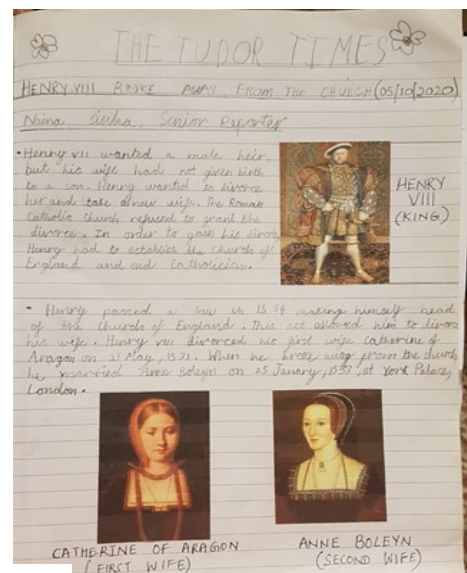 THE TUDOR TIMES
HENRY VIII BROKE AWAY FROM THE CHURCH (05/10/2020)
Naina Sinha, Senior Reporter
• Henry VII wanted a male heir,
but his wife had not given birth
to a son. Henry wanted to divorce
her and take a new wife. The Roman
Catholic Church refused to grant the
divorce. In order to gain his divorce,
Henry had to establish the Church of
England and end Catholicism.
HENRY
VIII
(KING)
• Henry passed a law in 1534 making himself head
of the Church of England. This act allowed him to divorce
his wife. Henry VIII divorced his first wife Catherine of
Aragon on 23 May, 1533. When he broke away from the church
he married Anne Boleyn on 25 January, 1533, at York Palace,
London.
CATHERINE OF ARAGON
(FIRST WIFE)
ANNE BOLEYN
(SECOND WIFE)